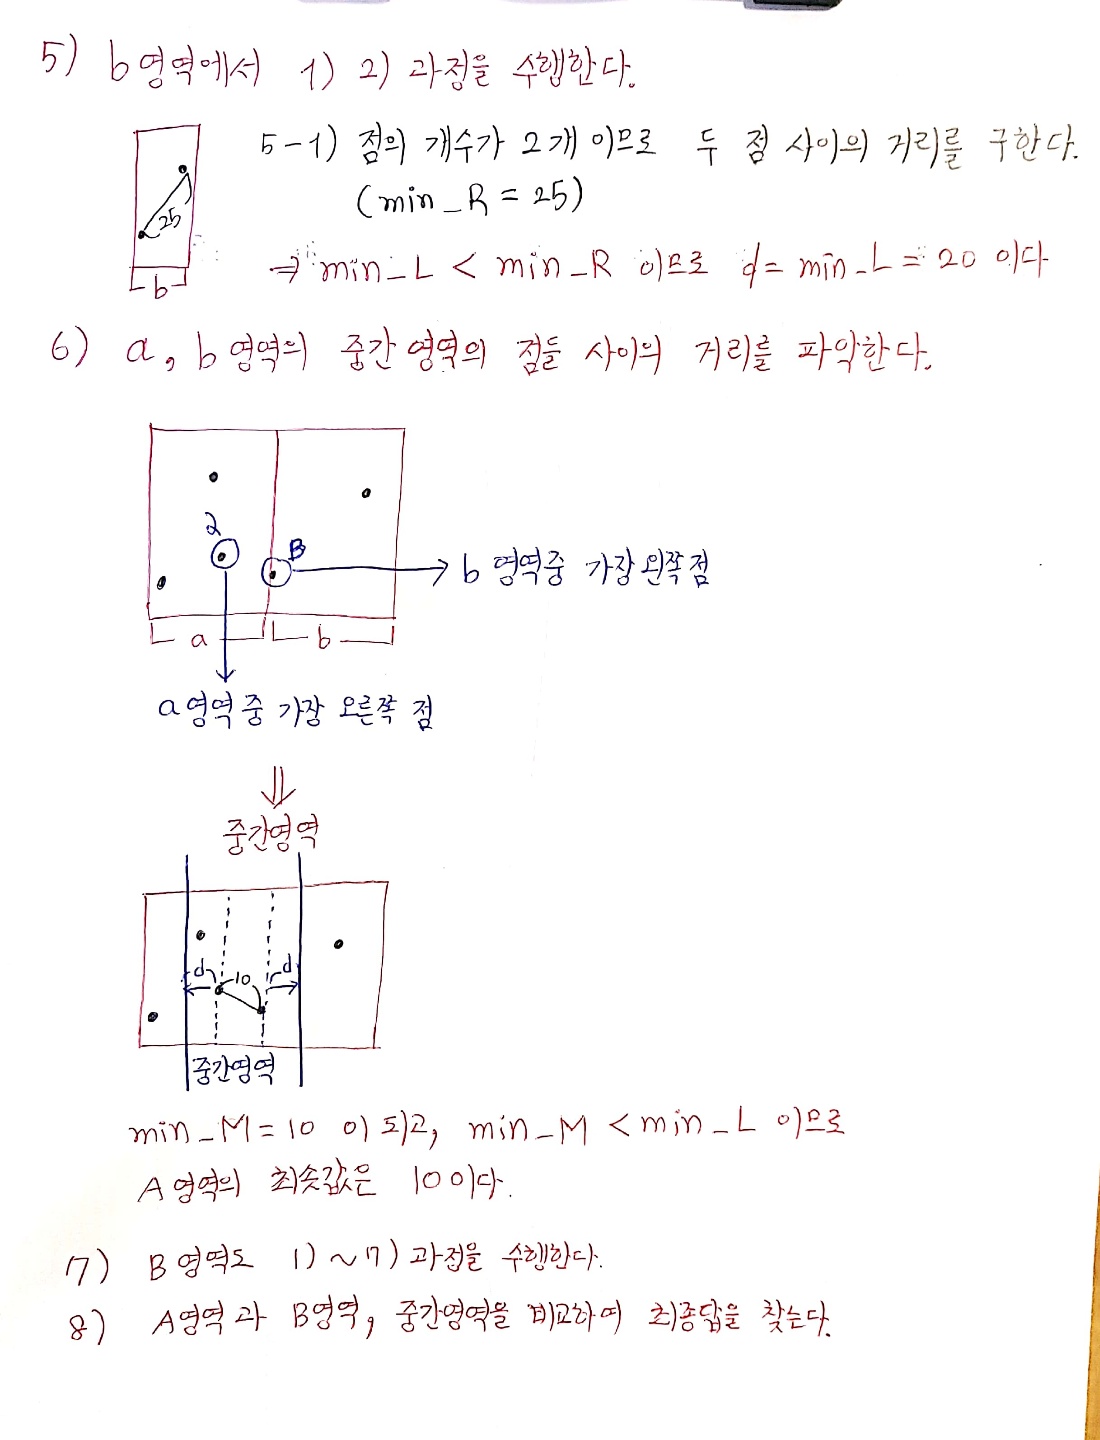 5) b영역에서 1) 2) 과정을 수행한다.
5-1) 점의 개수가 2개 이므로 두 점 사이의 거리를 구한다.
(min_R = 25)
25
b
⇒ min_L < min_R 이므로 d = min_L = 20 이다
6) a, b 영역의 중간 영역의 점들 사이의 거리를 파악한다.
2
B
→ b 영역중 가장 왼쪽 점
a
b
a영역 중 가장 오른쪽 점
⇓
중간영역
d
10
d
중간영역
min_M = 10 이 되고, min_M < min_L 이므로
A영역의 최솟값은 10이다.
7) B영역도 1) ~ 7) 과정을 수행한다.
8) A영역과 B영역, 중간영역을 비교하여 최종답을 찾는다.